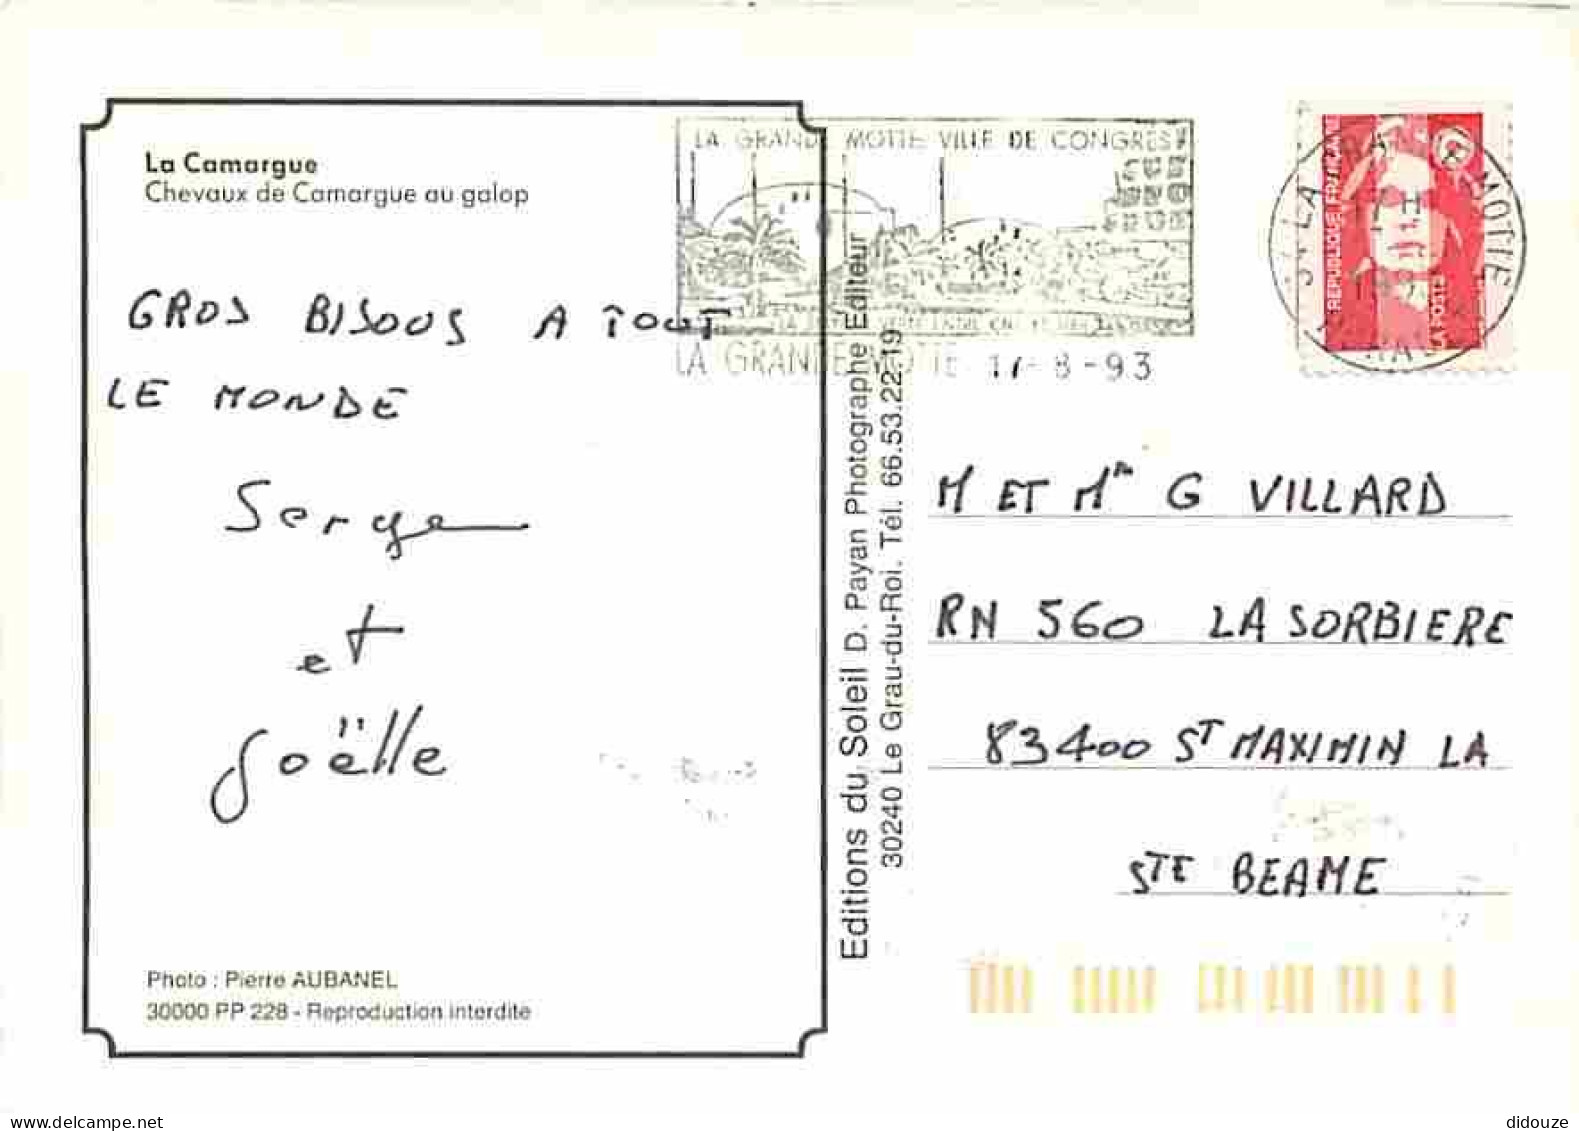 La Camargue
Chevaux de Camargue au galop
GROS BISOUS A TOUT
LE MONDE
Serge
et
Joëlle
Photo : Pierre AUBANEL
30000 PP 228 - Reproduction interdite
Editions du Soleil D. Payan Photographe Editeur
30240 Le Grau-du-Roi. Tél. 66.53.22.19
LA GRANDE MOTTE VILLE DE CONGRES
LA GRANDE MOTTE 17-8-93
REPUBLIQUE FRANÇAISE
LA POSTE
LA GRANDE MOTTE
M ET Mme G VILLARD
RN 560 LA SORBIERE
83400 ST MAXIMIN LA
STE BEAME
delcampe.net
didouze